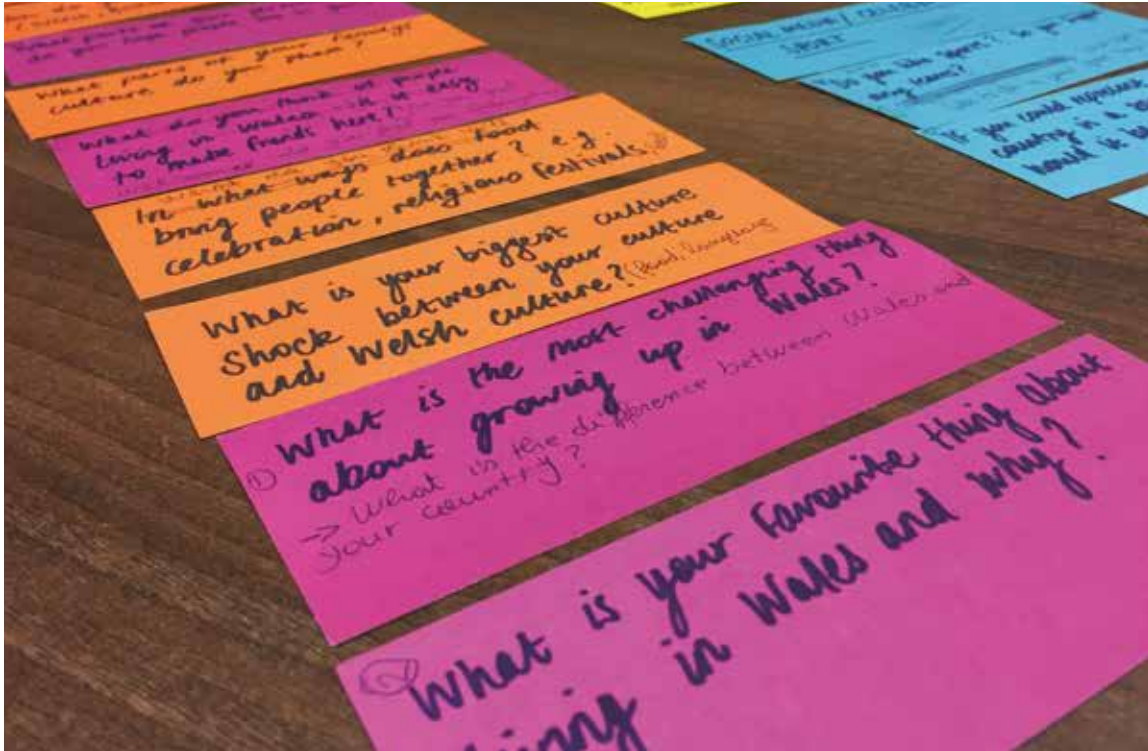 What parts of your family's
culture do you share?
What do you think of people
living in Wales? Is it easy
to make friends here?
In what ways does food
bring people together? e.g.
celebration, religious festivals.
What is your biggest culture
shock between your culture
and Welsh culture? (food, language
① What is the most challenging thing
about growing up in Wales?
→ What is the difference between Wales and
your country?
What is your favourite thing about
living in Wales and why?
SOCIAL MEDIA /
SPORT
Do you like sports? Do you support
any teams?
If you could represent
country in a
would it b